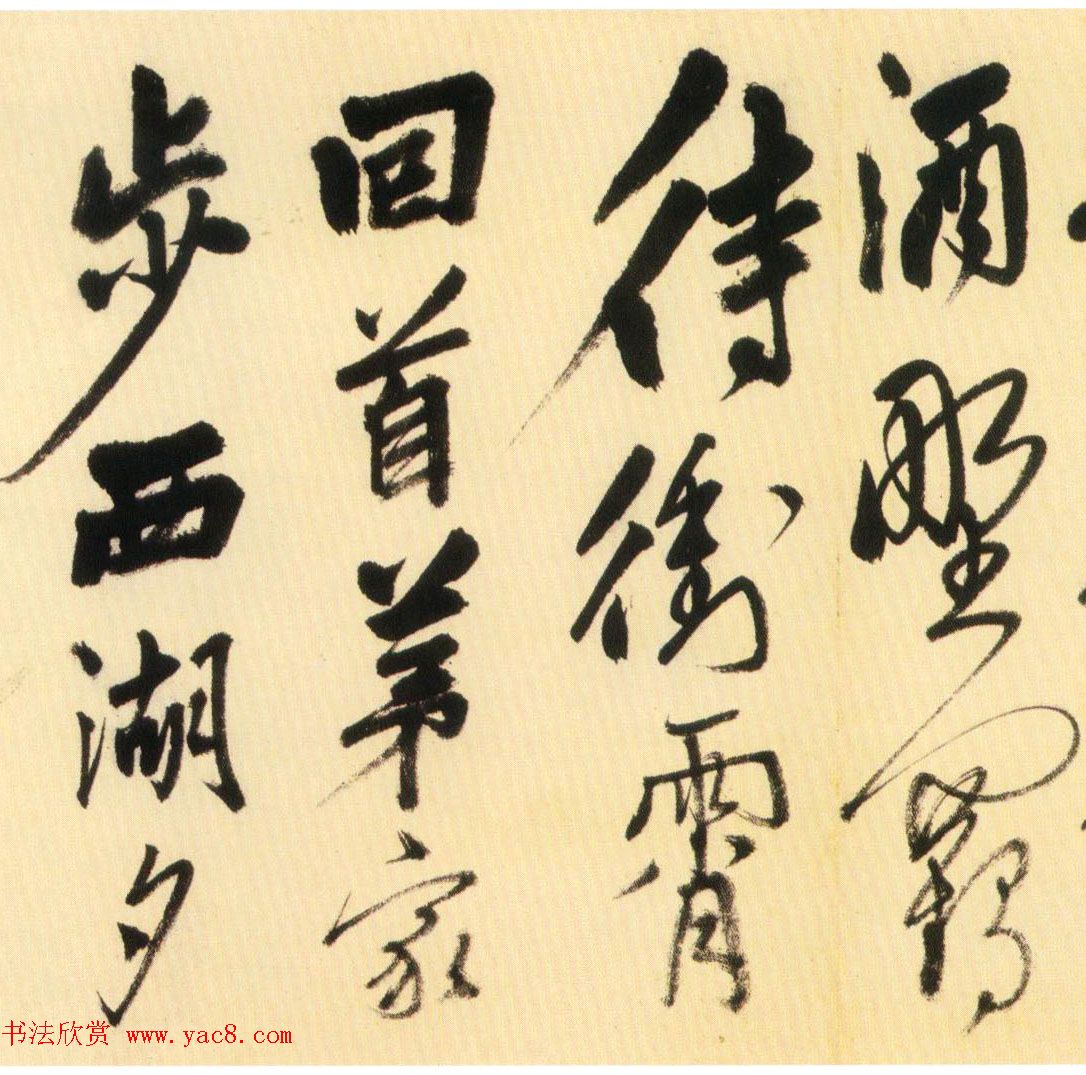 酒野鶴
待衝霄
回首茅家
步西湖夕
书法欣赏 www.yac8.com